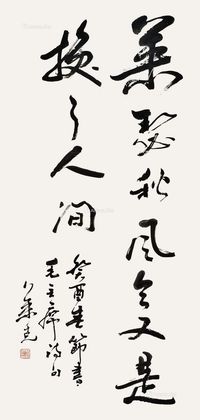 萧瑟秋风今又是
换了人间
癸酉春節书
毛主席诗句